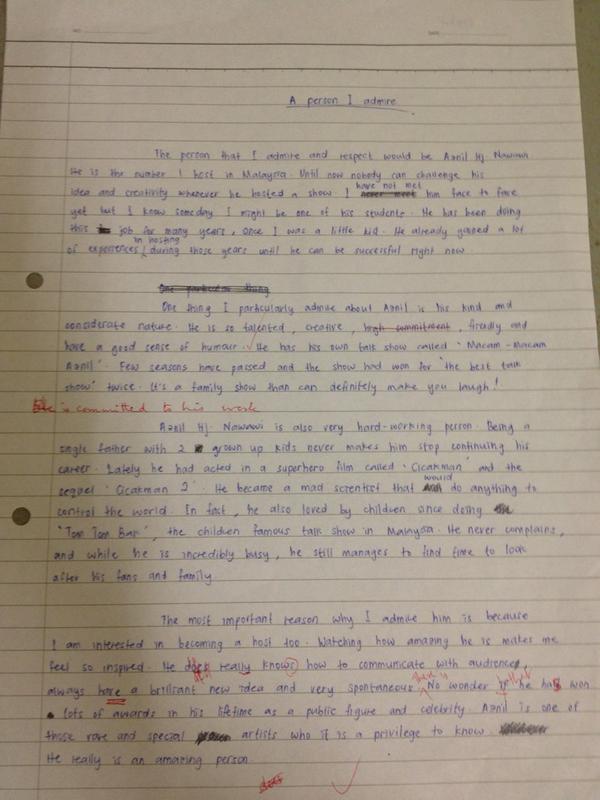 A person I admire
The person that I admire and respect would be Aznil Hj. Nawawi
He is the number 1 host in Malaysia. Until now nobody can challenge his
idea and creativity whenever he hosted a show. I have not met him face to face
yet but I know someday I might be one of his students. He has been doing
this job for many years, once I was a little kid. He already gained a lot
of experiences in hosting during those years until he can be successful right now.
One particular thing
One thing I particularly admire about Aznil is his kind and
considerate nature. He is so talented, creative, high commitment, friendly and
have a good sense of humour. He has his own talk show called 'Macam-Macam
Aznil'. Few seasons have passed and the show had won for 'the best talk
show' twice. It's a family show than can definitely make you laugh!
He is committed to his work
Aznil Hj. Nawawi is also very hard-working person. Being a
single father with 2 grown up kids never makes him stop continuing his
career. Lately he had acted in a superhero film called 'Cicakman' and the
sequel 'Cicakman 2'. He became a mad scientist that would do anything to
control the world. In fact, he also loved by children since doing
'Tom Tom Bak', the children famous talk show in Malaysia. He never complains,
and while he is incredibly busy, he still manages to find time to look
after his fans and family.
The most important reason why I admire him is because
I am interested in becoming a host too. Watching how amazing he is makes me
feel so inspired. He does really knows how to communicate with audience,
always have a brilliant new idea and very spontaneous. No wonder he has won
lots of awards in his lifetime as a public figure and celebrity. Aznil is one of
those rare and special artists who it is a privilege to know.
He really is an amazing person.